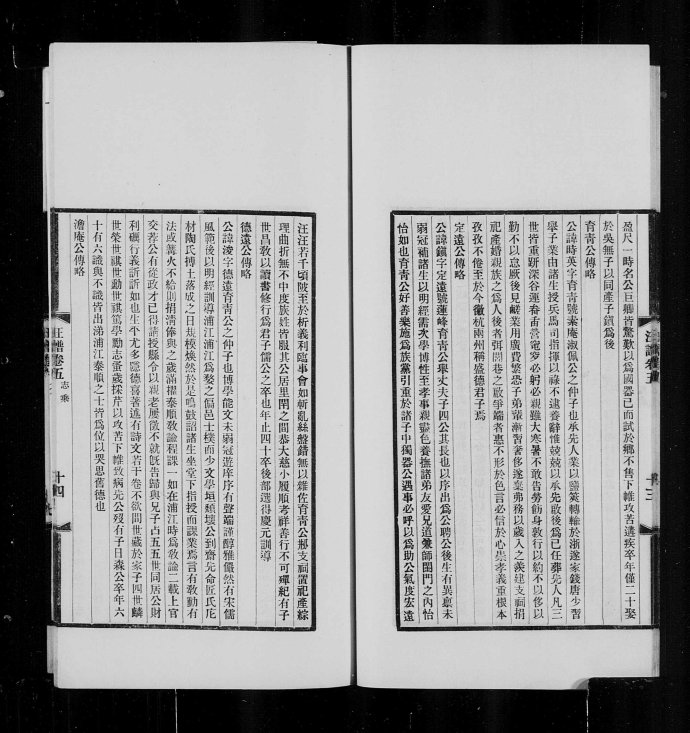 盈尺一時名公巨卿皆驚歎以爲國器已而試於鄉不售下帷攻苦遘疾卒年僅二十娶
於吳無子以同產子鎮爲後
育青公傳略
公諱時英字育青號素庵淑佩公之仲子也承先人業以鹽筴轉輸於浙遂家錢唐少習
舉子業由諸生授兵馬司指揮以祿不逮養辭惟兢兢以承先啟後爲己任葬先人凡三
世皆重趼深谷運畚臿營窀穸必躬必親雖大寒暑不敢告勞飭身敦行以約不以侈以
勤不以怠厥後兒嵯業用廣費繁恐子弟漸習奢侈遂棄弗務以歲入之羨建支祠捐
祀產婚親族之爲人後者弭閭巷之啟爭端者惠不形於色言必信於心崇孝義重根本
孜孜不倦至於今徽杭兩州稱盛德君子焉
定遠公傳略
公諱鎭字定遠號蓮峰育青公舉丈夫子四公其長也以序出爲公聘公後生有異禀未
弱冠補諸生以明經需次學博性至孝事親盡色養撫諸弟友愛兄道兼師閨門之內怡
怡如也育青公好善樂施爲族黨引重於諸子中獨器公遇事必呼以爲助公氣度宏遠
汪汪若千頃陂至於析義利臨事會如斬亂絲盤錯無以難佐育青公刱支祠置祀產綜
理曲折無不中度族姓皆服其公居里閈之間恭大慈小履順考祥善行不可殫紀有子
世昌敎以讀書修行爲君子儒公之卒也年止四十卒後部選得慶元訓導
德遠公傳略
公諱淩字德遠育青公之仲子也博學能文未弱冠遊庠序有聲端謹醇雅儼然有宋儒
風範後以明經訓導浦江浦江爲婺之偏邑士樸而少文學垣頹壞公到齋先命匠氏庀
材陶氏摶土落成之日規模煥然於是鳴鼓詔諸生坐堂下指授而課業焉言有敎動有
法或篝火不給則捐淸俸與之歲滿擢泰順敎諭程課一如在浦江時爲敎諭二載上官
交荐公有從政才已得請授縣令以親老屢徵不就旣告歸與兄子占五五世同居公財
利礪行義訢訢如也生平尤多隱德喜著述有詩文若干卷不欲問世藏於家子四世麟
世榮世祺世勳世祺篤學勵志蚤歲採芹以攻苦下帷致病先公歿有子日森公卒年六
十有六識與不識皆出涕浦江泰順之士皆爲位以哭思舊德也
澹庵公傳略
汪譜卷五
志乘
十四
十三